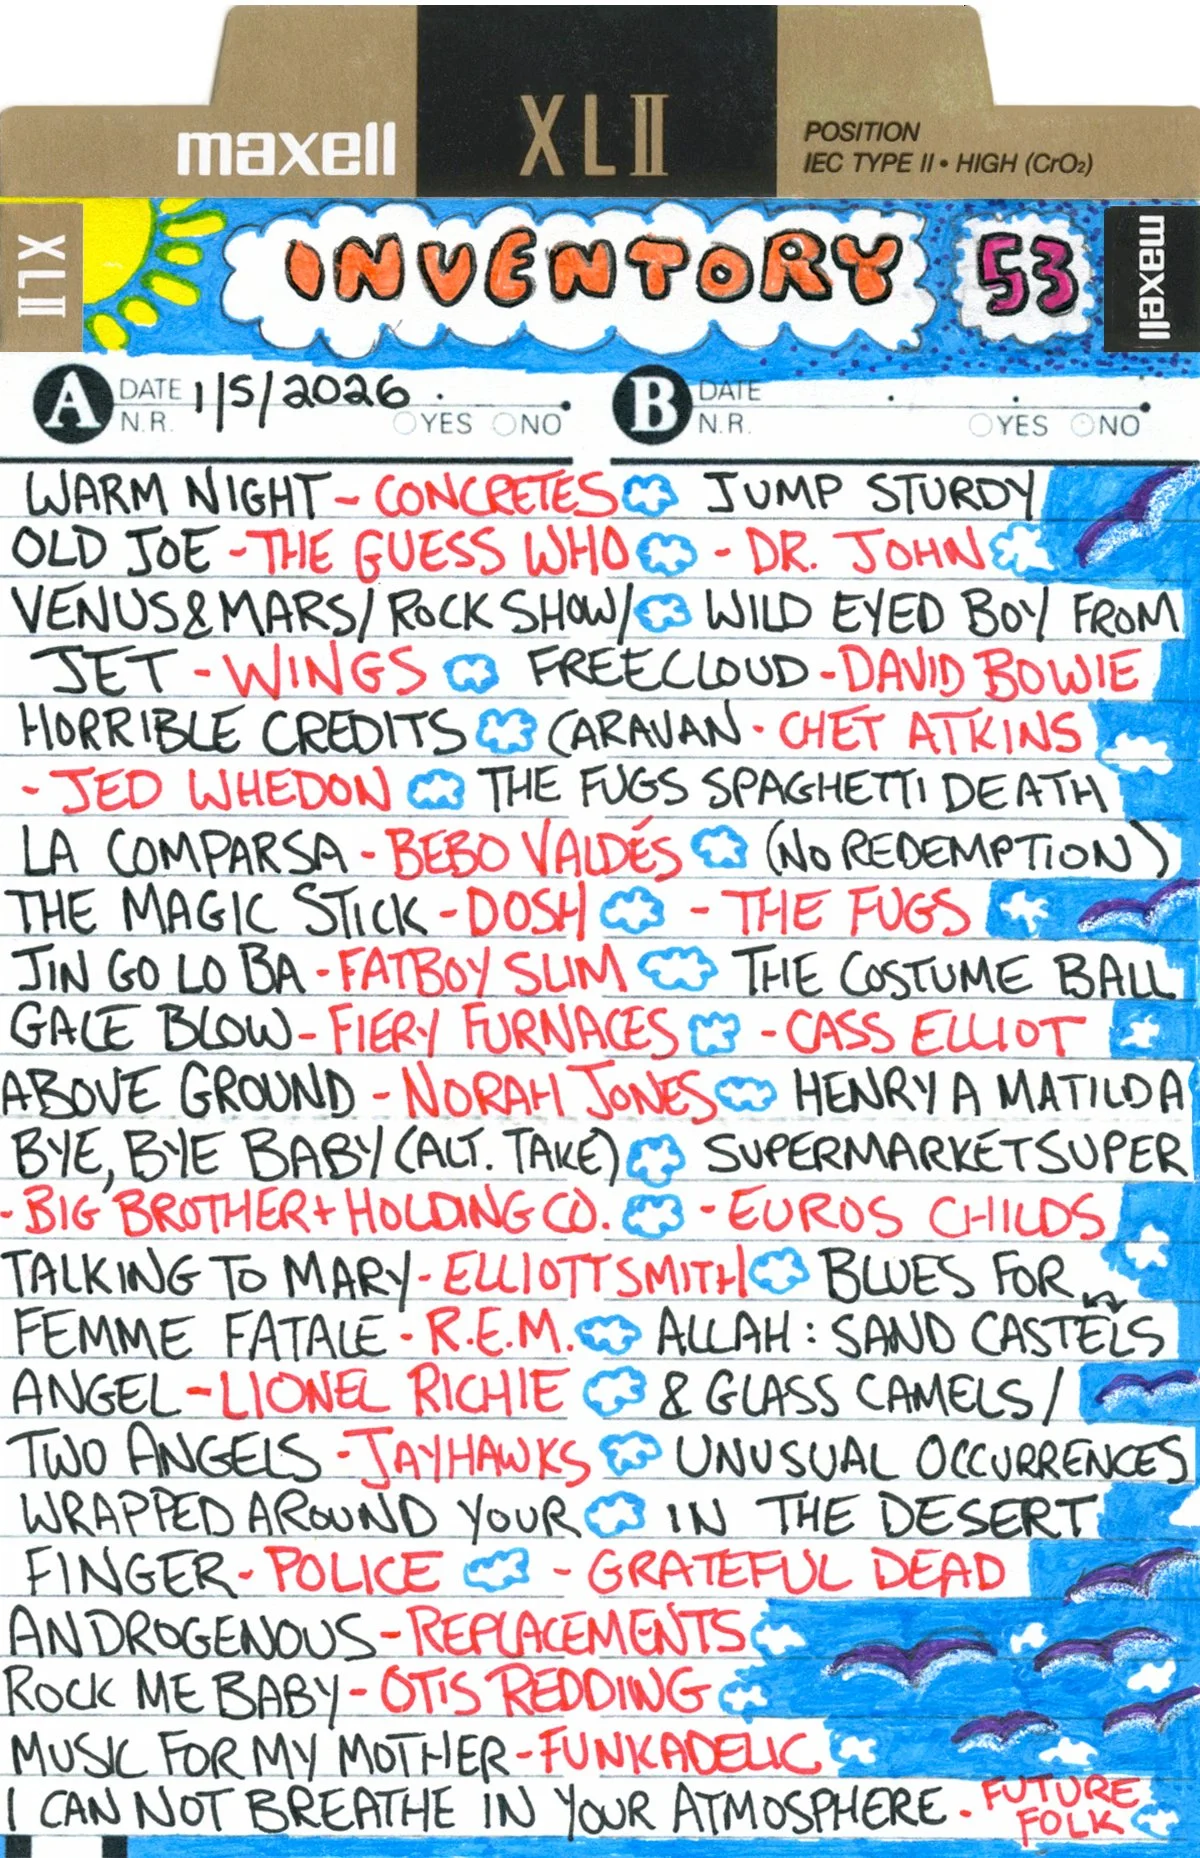 maxell
XLII
POSITION
IEC TYPE II • HIGH (CrO₂)
XLII
INVENTORY
53
maxell
A DATE 1/5/2026
N.R. YES NO
B DATE
N.R. YES NO
WARM NIGHT - CONCRETES
OLD JOE - THE GUESS WHO
VENUS & MARS / ROCK SHOW /
JET - WINGS
HORRIBLE CREDITS
- JED WHEDON
LA COMPARSA - BEBO VALDÉS
THE MAGIC STICK - DOSH
JIN GO LO BA - FATBOY SLIM
GALE BLOW - FIERY FURNACES
ABOVE GROUND - NORAH JONES
BYE, BYE BABY (ALT. TAKE)
- BIG BROTHER + HOLDING CO.
TALKING TO MARY - ELLIOTT SMITH
FEMME FATALE - R.E.M.
ANGEL - LIONEL RICHIE
TWO ANGELS - JAYHAWKS
WRAPPED AROUND YOUR
FINGER - POLICE
ANDROGENOUS - REPLACEMENTS
ROCK ME BABY - OTIS REDDING
MUSIC FOR MY MOTHER - FUNKADELIC
I CAN NOT BREATHE IN YOUR ATMOSPHERE - FUTURE
FOLK
JUMP STURDY
- DR. JOHN
WILD EYED BOY FROM
FREECLOUD - DAVID BOWIE
CARAVAN - CHET ATKINS
THE FUGS SPAGHETTI DEATH
(NO REDEMPTION)
- THE FUGS
THE COSTUME BALL
- CASS ELLIOT
HENRY A MATILDA
SUPERMARKETSUPER
- EUROS CHILDS
BLUES FOR
ALLAH : SAND CASTELS
& GLASS CAMELS /
UNUSUAL OCCURRENCES
IN THE DESERT
- GRATEFUL DEAD